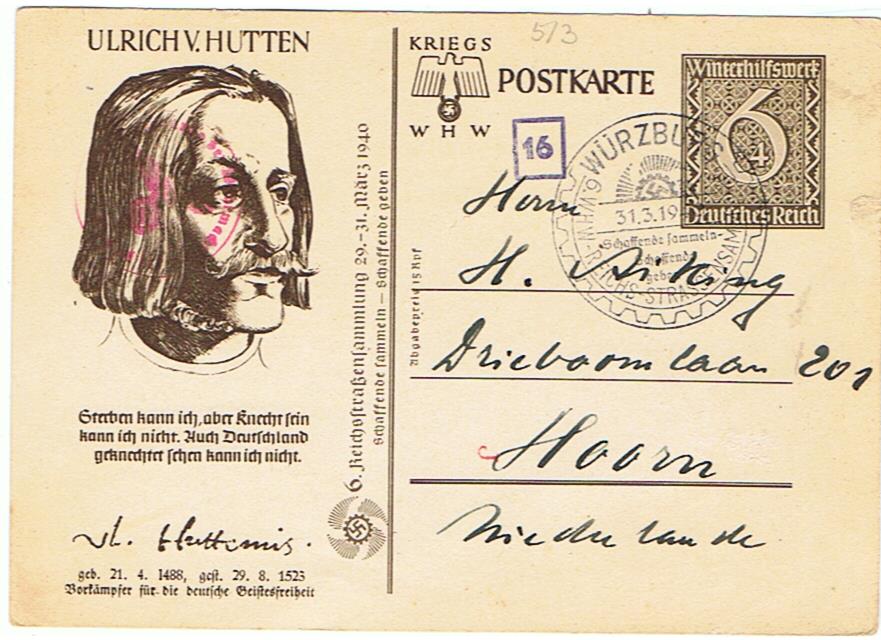 ULRICH V. HUTTEN
Sterben kann ich, aber Knecht sein
kann ich nicht. Auch Deutschland
geknechtet sehen kann ich nicht.
geb. 21. 4. 1488, gest. 29. 8. 1523
Vorkämpfer für die deutsche Geistesfreiheit
6. Reichsstraßensammlung 29.-31. März 1940
Schaffende sammeln – Schaffende geben
Abgabepreis 15 Rpf
5/3
KRIEGS
WHW
POSTKARTE
16
Winterhilfswerk
6
4
Deutsches Reich
31.3.19
Schaffende sammeln-
Schaffende
Herrn
H.
Drieboomlaan 201
Hoorn
Niederlande